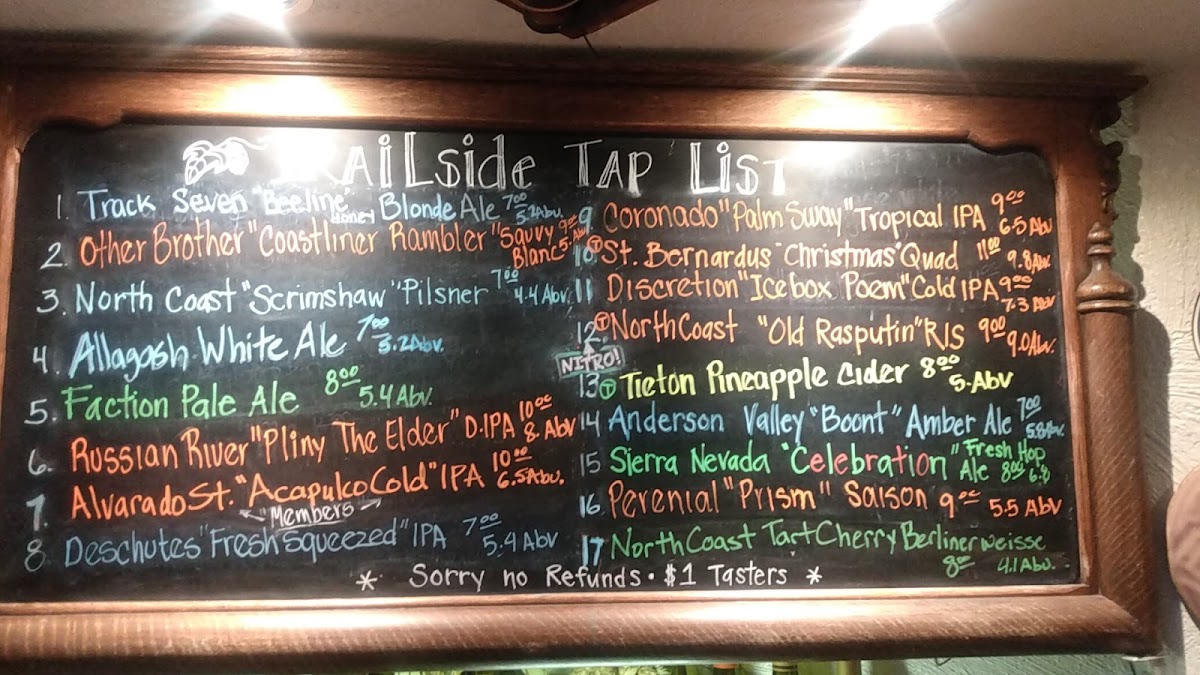 TRaiLside TAP LiST
1. Track Seven "Beeline" Honey Blonde Ale 7.00 5.2 Abv.
2. Other Brother "Coastliner Rambler" Savvy Blanc 9.00 5. Abv
3. North Coast "Scrimshaw" Pilsner 7.00 4.4 Abv.
4. Allagash White Ale 7.00 5.2 Abv.
5. Faction Pale Ale 8.00 5.4 Abv.
6. Russian River "Pliny The Elder" D.IPA 10.00 8. Abv
7. Alvarado St. "Acapulco Cold" IPA 10.00 6.5 Abv.
"Members"
8 Deschutes "Fresh Squeezed" IPA 7.00 5.4 Abv
9 Coronado "Palm Sway" Tropical IPA 9.00 6.5 Abv
10 T St. Bernardus "Christmas" Quad 11.00 9.8 Abv.
11 Discretion "Icebox Poem" Cold IPA 9.00 7.3 Abv
12. T North Coast "Old Rasputin" RIS 9.00 9.0 Abv.
NITRO!
13 T Tieton Pineapple Cider 8.00 5. Abv
14 Anderson Valley "Boont" Amber Ale 7.00 5.8 Abv.
15 Sierra Nevada "Celebration" Fresh Hop Ale 8.00 6.8
16 Perenial "Prism" Saison 9.00 5.5 Abv
17 North Coast Tart Cherry Berliner weisse 8.00 4.1 Abv.
* Sorry no Refunds • $1 Tasters *